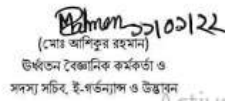 ২১/০২/২২
(মোঃ আশিকুর রহমান)
ঊর্ধ্বতন বৈজ্ঞানিক কর্মকর্তা ও
সদস্য সচিব, ই-গর্ভন্যান্স ও উদ্ভাবন